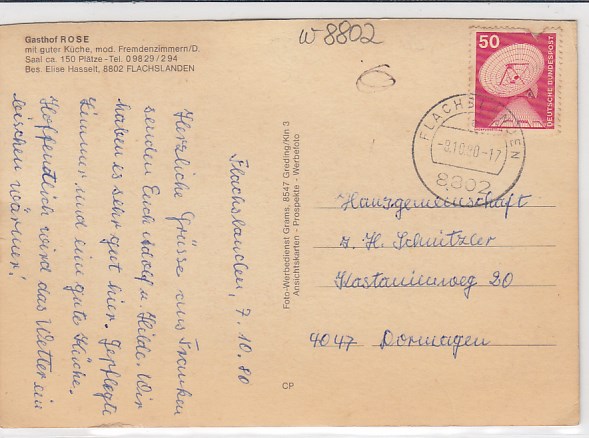 Gasthof ROSE
mit guter Küche, mod. Fremdenzimmern/D.
Saal ca. 150 Plätze - Tel. 0 98 29 / 2 94
Bes. Elise Hasselt, 8802 FLACHSLANDEN
w 8802
6
50
DEUTSCHE BUNDESPOST
FLACHSLANDEN
-9.10.80-17
8802
Flachslanden, 7.10.80
Herzliche Grüsse aus Franken
senden Euch Adolf u. Hilde. Wir
haben es sehr gut hier. Gepflegte
Zimmer und eine gute Küche.
Hoffentlich wird das Wetter ein
bischen wärmer!
Foto-Werbedienst Grems, 8547 Greding/Kin 3
Ansichtskarten - Prospekte - Werbefoto
CP
Hausgemeinschaft
z. H. Schnitzler
Kastanienweg 20
4047 Dormagen